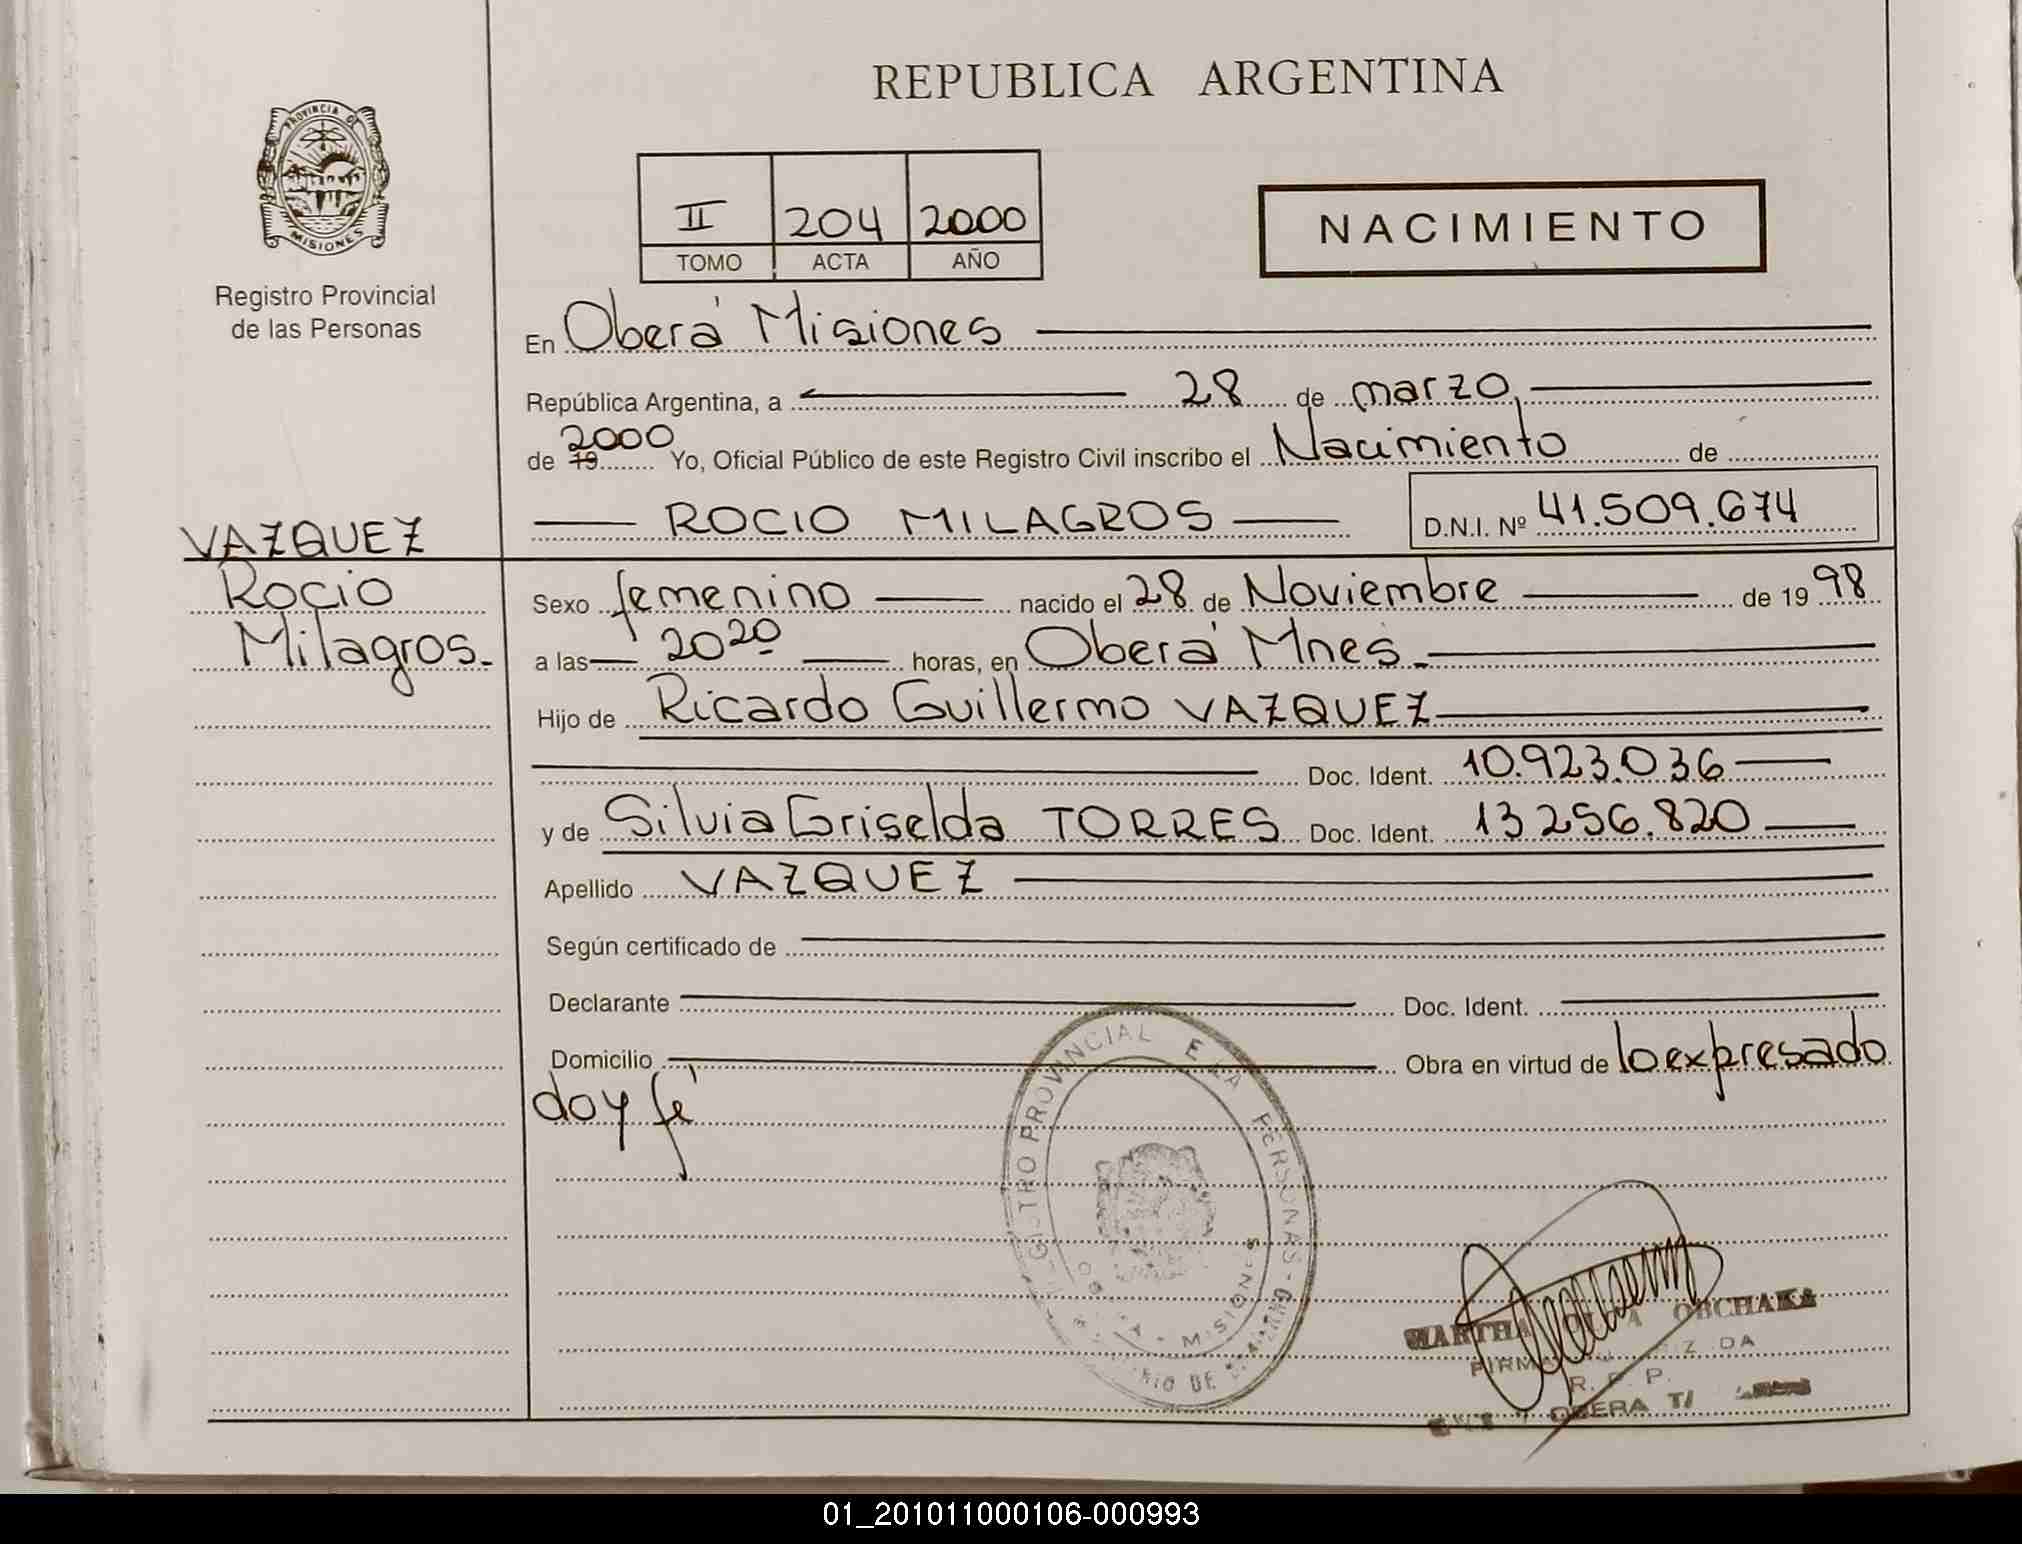 REPUBLICA ARGENTINA
PROVINCIA DE
MISIONES
Registro Provincial
de las Personas
II 204 2000
TOMO ACTA AÑO
NACIMIENTO
En Oberá Misiones
República Argentina, a 28 de marzo
2000
de 19 Yo, Oficial Público de este Registro Civil inscribo el Nacimiento de
ROCIO MILAGROS D.N.I. Nº 41.509.674
VAZQUEZ
Rocio
Milagros.
Sexo femenino nacido el 28 de Noviembre de 1998
a las 20 20 horas, en Oberá Mnes.
Hijo de Ricardo Guillermo VAZQUEZ
Doc. Ident. 10.923.036
y de Silvia Griselda TORRES Doc. Ident. 13 256.820
Apellido VAZQUEZ
Según certificado de
Declarante Doc. Ident.
Domicilio Obra en virtud de lo expresado
doy fé
REGISTRO PROVINCIAL E LA PERSONAS
MISIONES
MARTHA OLGA OBCHAKA
R. P.
OBERA
01_201011000106-000993